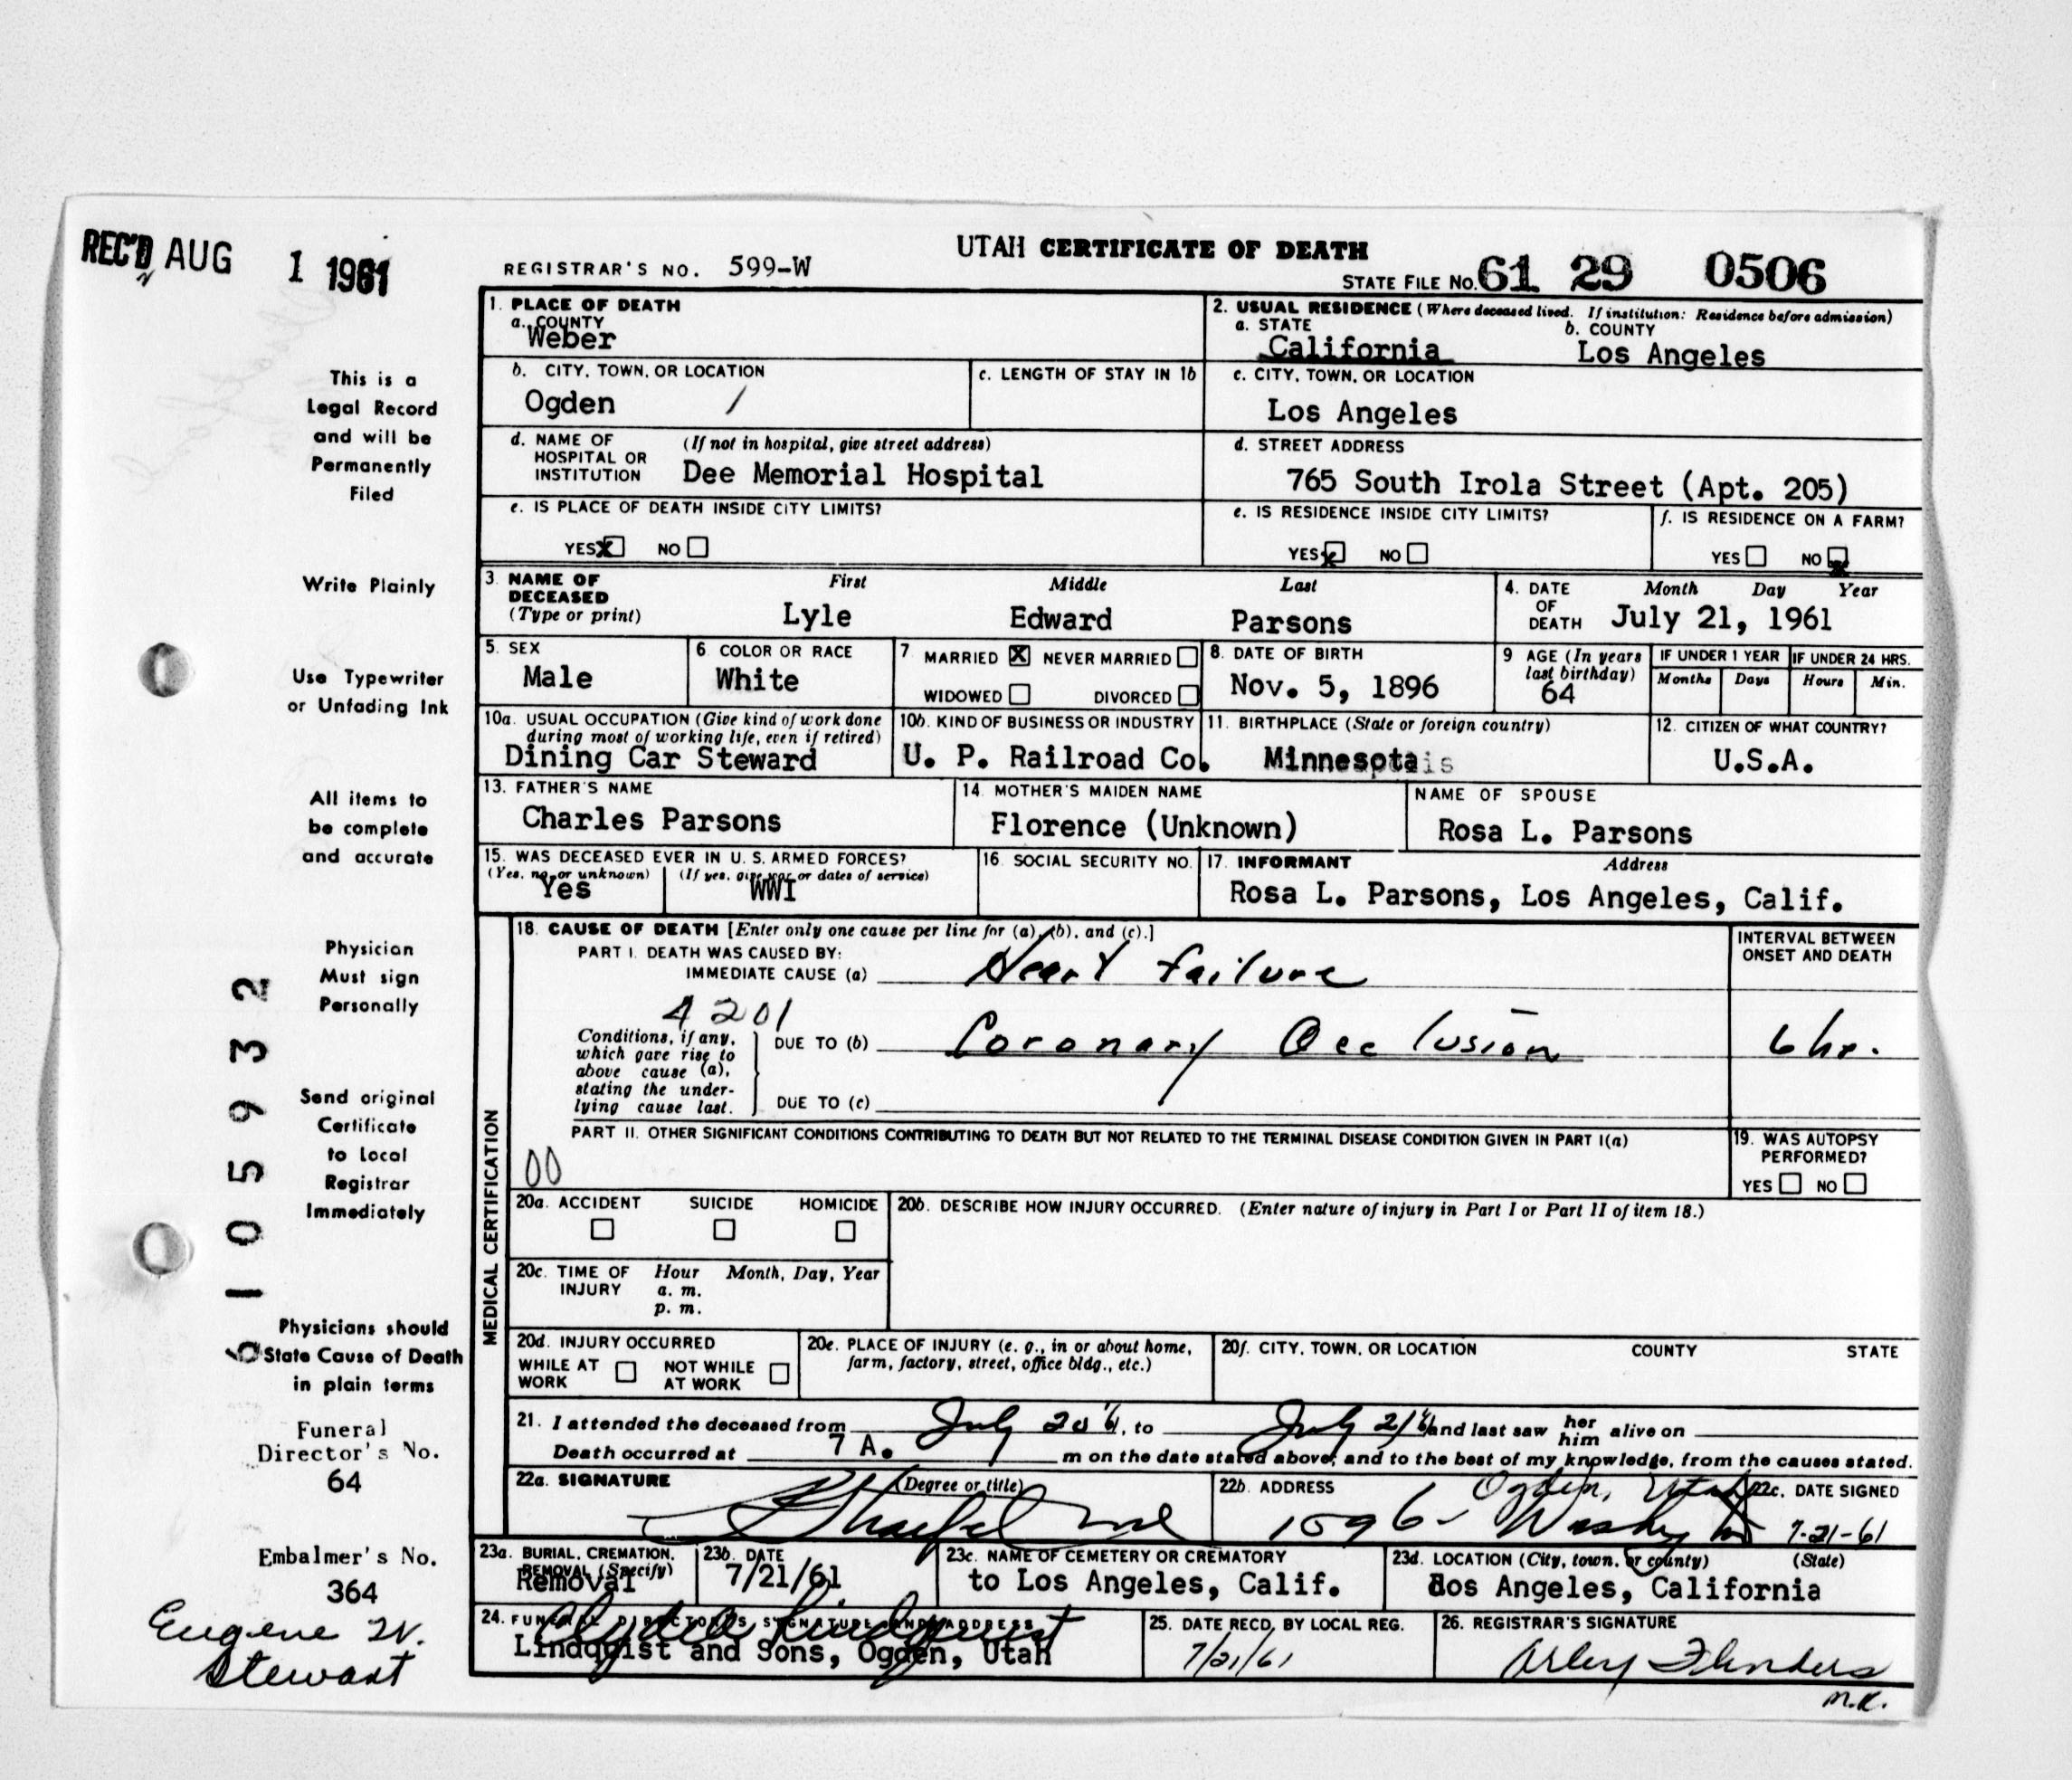 REC'D AUG 1 1961
UTAH CERTIFICATE OF DEATH
REGISTRAR'S NO. 599-W
STATE FILE NO. 61 29 0506
This is a
Legal Record
and will be
Permanently
Filed
Write Plainly
Use Typewriter
or Unfading Ink
All items to
be complete
and accurate
Physician
Must sign
Personally
Send original
Certificate
to Local
Registrar
Immediately
Physicians should
State Cause of Death
in plain terms
Funeral
Director's No.
64
Embalmer's No.
364
Eugene W.
Stewart
1. PLACE OF DEATH
a. COUNTY
Weber
2. USUAL RESIDENCE (Where deceased lived. If institution: Residence before admission)
a. STATE b. COUNTY
California Los Angeles
b. CITY, TOWN, OR LOCATION
Ogden
c. LENGTH OF STAY IN 1b
c. CITY, TOWN, OR LOCATION
Los Angeles
d. NAME OF HOSPITAL OR INSTITUTION (If not in hospital, give street address)
Dee Memorial Hospital
d. STREET ADDRESS
765 South Irola Street (Apt. 205)
e. IS PLACE OF DEATH INSIDE CITY LIMITS?
YES X NO
e. IS RESIDENCE INSIDE CITY LIMITS?
YES X NO
f. IS RESIDENCE ON A FARM?
YES NO X
3. NAME OF DECEASED (Type or print)
First Middle Last
Lyle Edward Parsons
4. DATE OF DEATH Month Day Year
July 21, 1961
5. SEX
Male
6. COLOR OR RACE
White
7. MARRIED X NEVER MARRIED
WIDOWED DIVORCED
8. DATE OF BIRTH
Nov. 5, 1896
9 AGE (In years last birthday)
64
IF UNDER 1 YEAR IF UNDER 24 HRS.
Months Days Hours Min.
10a. USUAL OCCUPATION (Give kind of work done during most of working life, even if retired)
Dining Car Steward
10b. KIND OF BUSINESS OR INDUSTRY
U. P. Railroad Co.
11. BIRTHPLACE (State or foreign country)
Minnesota
12. CITIZEN OF WHAT COUNTRY?
U.S.A.
13. FATHER'S NAME
Charles Parsons
14. MOTHER'S MAIDEN NAME
Florence (Unknown)
NAME OF SPOUSE
Rosa L. Parsons
15. WAS DECEASED EVER IN U. S. ARMED FORCES?
(Yes, no, or unknown) (If yes, give war or dates of service)
Yes WWI
16. SOCIAL SECURITY NO.
17. INFORMANT Address
Rosa L. Parsons, Los Angeles, Calif.
MEDICAL CERTIFICATION
18. CAUSE OF DEATH [Enter only one cause per line for (a), (b), and (c).]
PART I. DEATH WAS CAUSED BY:
IMMEDIATE CAUSE (a) Heart failure
INTERVAL BETWEEN ONSET AND DEATH
4201
Conditions, if any, which gave rise to above cause (a), stating the underlying cause last.
DUE TO (b) Coronary Occlusion
6 hr.
DUE TO (c)
PART II. OTHER SIGNIFICANT CONDITIONS CONTRIBUTING TO DEATH BUT NOT RELATED TO THE TERMINAL DISEASE CONDITION GIVEN IN PART I(a)
00
19. WAS AUTOPSY PERFORMED?
YES NO
20a. ACCIDENT SUICIDE HOMICIDE
20b. DESCRIBE HOW INJURY OCCURRED. (Enter nature of injury in Part I or Part II of item 18.)
20c. TIME OF INJURY Hour Month, Day, Year
a. m.
p. m.
20d. INJURY OCCURRED
WHILE AT WORK NOT WHILE AT WORK
20e. PLACE OF INJURY (e. g., in or about home, farm, factory, street, office bldg., etc.)
20f. CITY, TOWN, OR LOCATION COUNTY STATE
21. I attended the deceased from July 20 61, to July 21 61 and last saw her him alive on
Death occurred at 7 A. m on the date stated above; and to the best of my knowledge, from the causes stated.
22a. SIGNATURE (Degree or title)
22b. ADDRESS
Ogden, Utah
Washington
22c. DATE SIGNED
7-21-61
23a. BURIAL, CREMATION, REMOVAL (Specify)
Removal
23b. DATE
7/21/61
23c. NAME OF CEMETERY OR CREMATORY
to Los Angeles, Calif.
23d. LOCATION (City, town, or county) (State)
Los Angeles, California
24. FUNERAL DIRECTOR'S SIGNATURE AND ADDRESS
Clyde Lindquist
Lindquist and Sons, Ogden, Utah
25. DATE RECD. BY LOCAL REG.
7/21/61
26. REGISTRAR'S SIGNATURE
Arley Flinders
m.k.